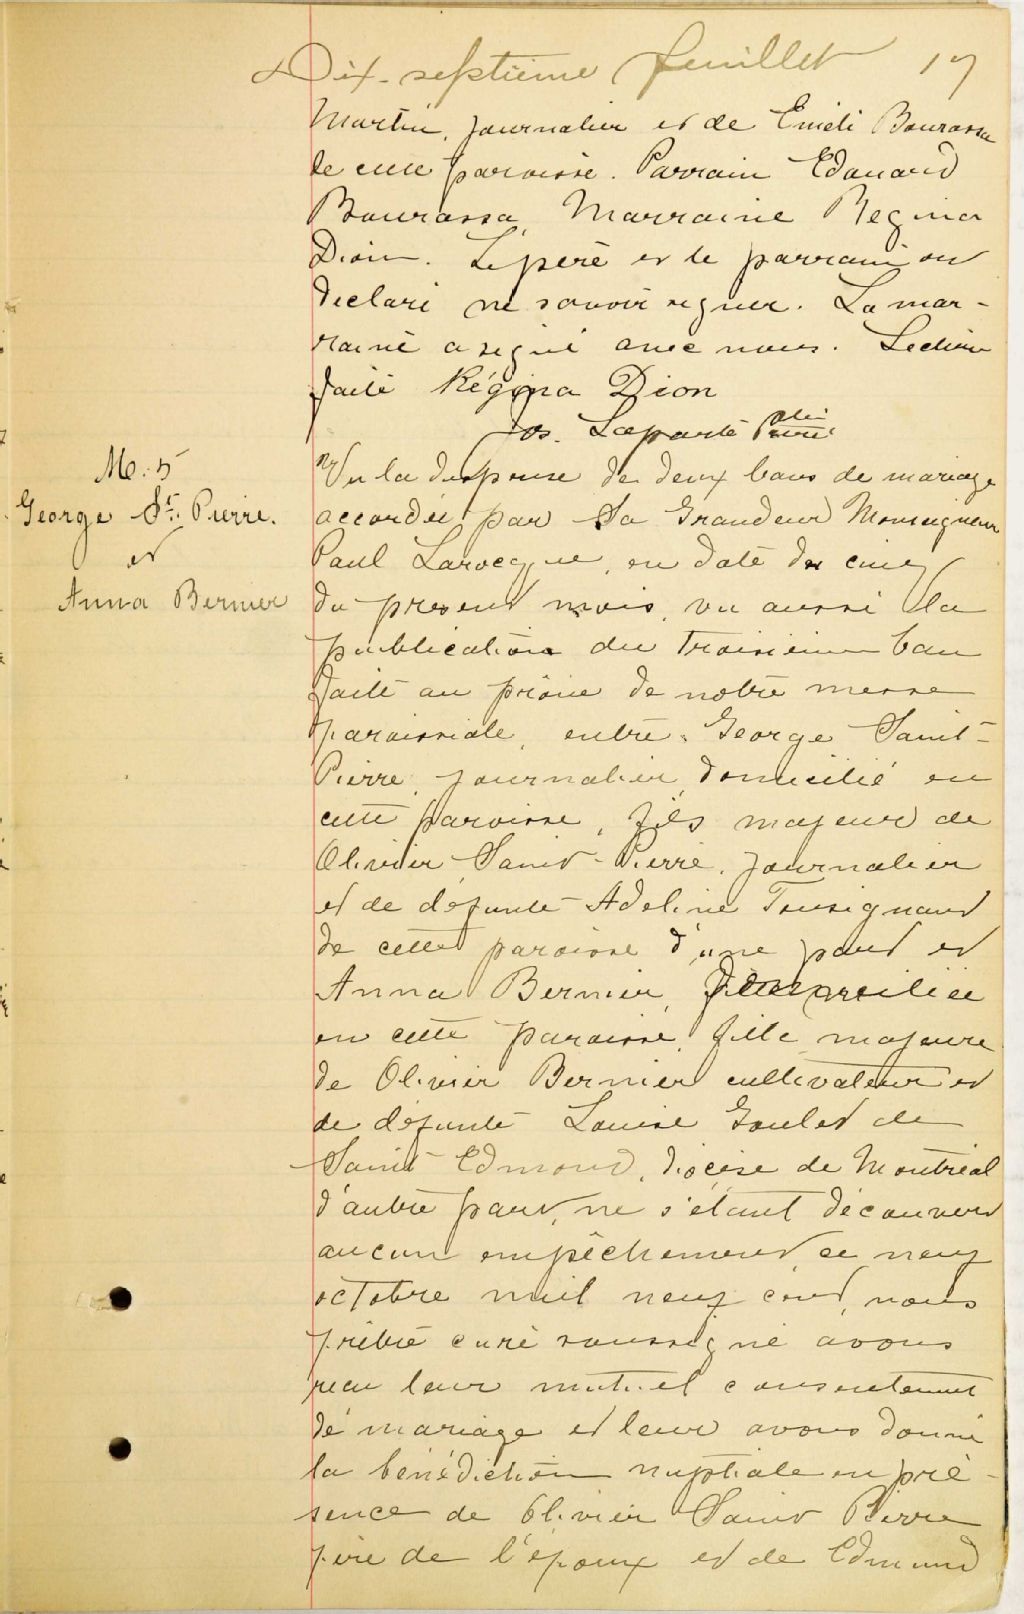 Dix-septième feuillet 17
Martin, journalier et de Emeli Bourassa
de cette paroisse. Parrain Edouard
Bourassa, Marraine Regina
Dion. Le père et le parrain ont
declaré ne savoir signer. La mar-
raine a signé avec nous. Lecture
faite Régina Dion
Jos. Laporte Ptre
M. 5
George St. Pierre.
et
Anna Bernier
Vu la dispense de deux bans de mariage
accordée par Sa Grandeur Monseigneur
Paul Larocque, en date du cinq
du present mois, vu aussi la
publication du troisieme ban
faite au prône de notre messe
paroissiale, entre George Saint-
Pierre, journalier, domicilié en
cette paroisse, fils majeur de
Olivier Saint-Pierre, journalier
et de défunte Adeline Tousignant
de cette paroisse d'une part et
Anna Bernier, domiciliée
en cette paroisse, fille majeure
de Olivier Bernier cultivateur et
de défunte Louise Goulet de
Saint Edmond, diocèse de Montréal
d'autre part, ne s'étant découvert
aucun empêchement, ce neuf
octobre mil neuf cent, nous
prêtre curé soussigné avons
reçu leur mutuel consentement
de mariage et leur avons donné
la bénédiction nuptiale en pré-
sence de Olivier Saint Pierre
père de l'époux et de Edmund